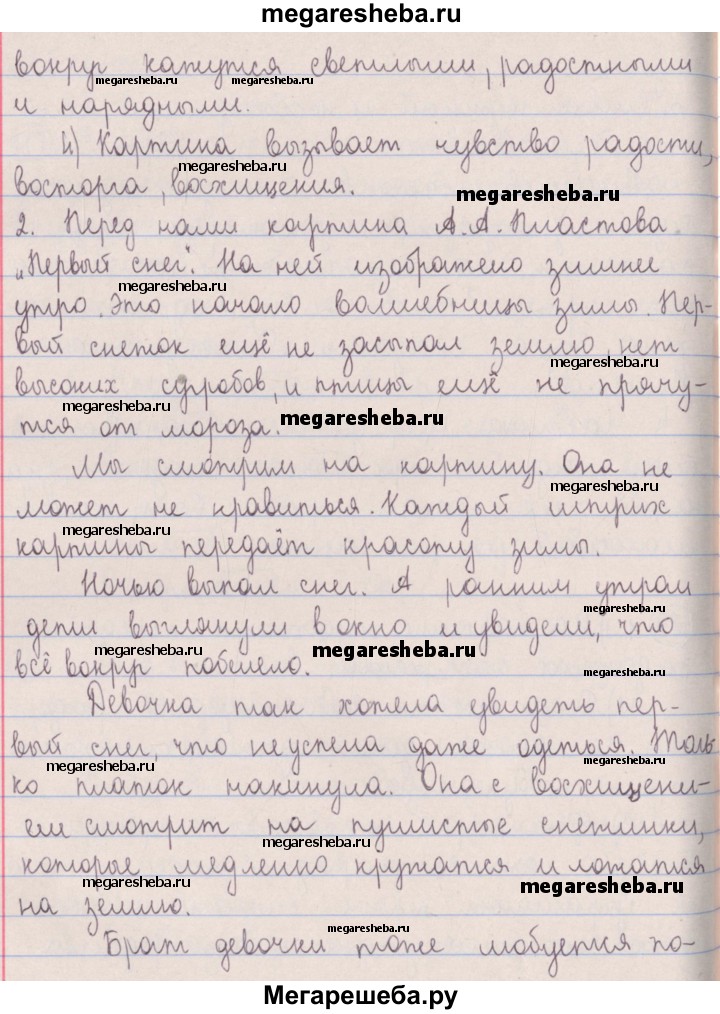 megaresheba.ru
вокруг кажутся светлыми, радостными
megaresheba.ru megaresheba.ru
и нарядными.
4) Картина вызывает чувство радости,
megaresheba.ru
восторга, восхищения.
megaresheba.ru
2. Перед нами картина А.А. Пластова
„Первый снег". На ней изображено зимнее
megaresheba.ru
утро. Это начало волшебницы зимы. Пер-
вый снежок ещё не засыпал землю, нет
megaresheba.ru
высоких сугробов, и птицы ещё не прячу-
megaresheba.ru megaresheba.ru
тся от мороза.
Мы смотрим на картину. Она не
megaresheba.ru
может не нравиться. Каждый штрих
megaresheba.ru
картины передаёт красоту зимы.
Ночью выпал снег. А ранним утром
megaresheba.ru
дети выглянули в окно и увидели, что
megaresheba.ru megaresheba.ru
всё вокруг побелело.
megaresheba.ru
Девочка так хотела увидеть пер-
вый снег, что не успела даже одеться. Толь
megaresheba.ru megaresheba.ru
ко платок накинула. Она с восхищени-
ем смотрит на пушистые снежинки,
megaresheba.ru
которые медленно кружатся и ложатся
megaresheba.ru megaresheba.ru
на землю.
megaresheba.ru
Брат девочки тоже любуется по-
Мегарешеба.ру